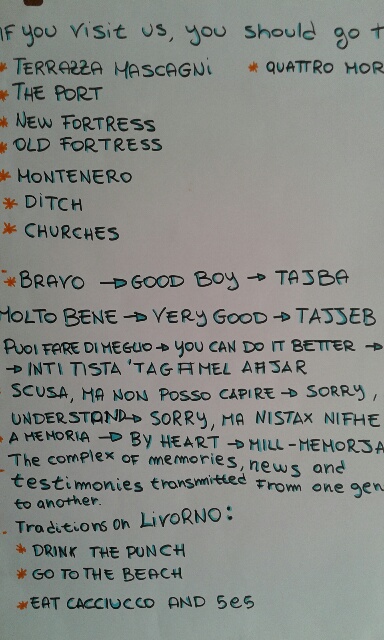 If you visit us, you should go t
* TERRAZZA MASCAGNI * QUATTRO MOR
* THE PORT
* NEW FORTRESS
* OLD FORTRESS
* MONTENERO
* DITCH
* CHURCHES
* BRAVO → GOOD BOY → TAJBA
MOLTO BENE → VERY GOOD → TAJJEB
PUOI FARE DI MEGLIO → YOU CAN DO IT BETTER →
→ INTI TISTA 'TAGĦMEL AĦJAR
SCUSA, MA NON POSSO CAPIRE → SORRY,
UNDERSTAND → SORRY, MA NISTAX NIFHE
A MEMORIA → BY HEART → MILL-MEMORJA
The complex of memories, news and
testimonies transmitted from one gen
to another.
Traditions on LIVORNO:
* DRINK THE PUNCH
* GO TO THE BEACH
* EAT CACCIUCCO AND 5e5